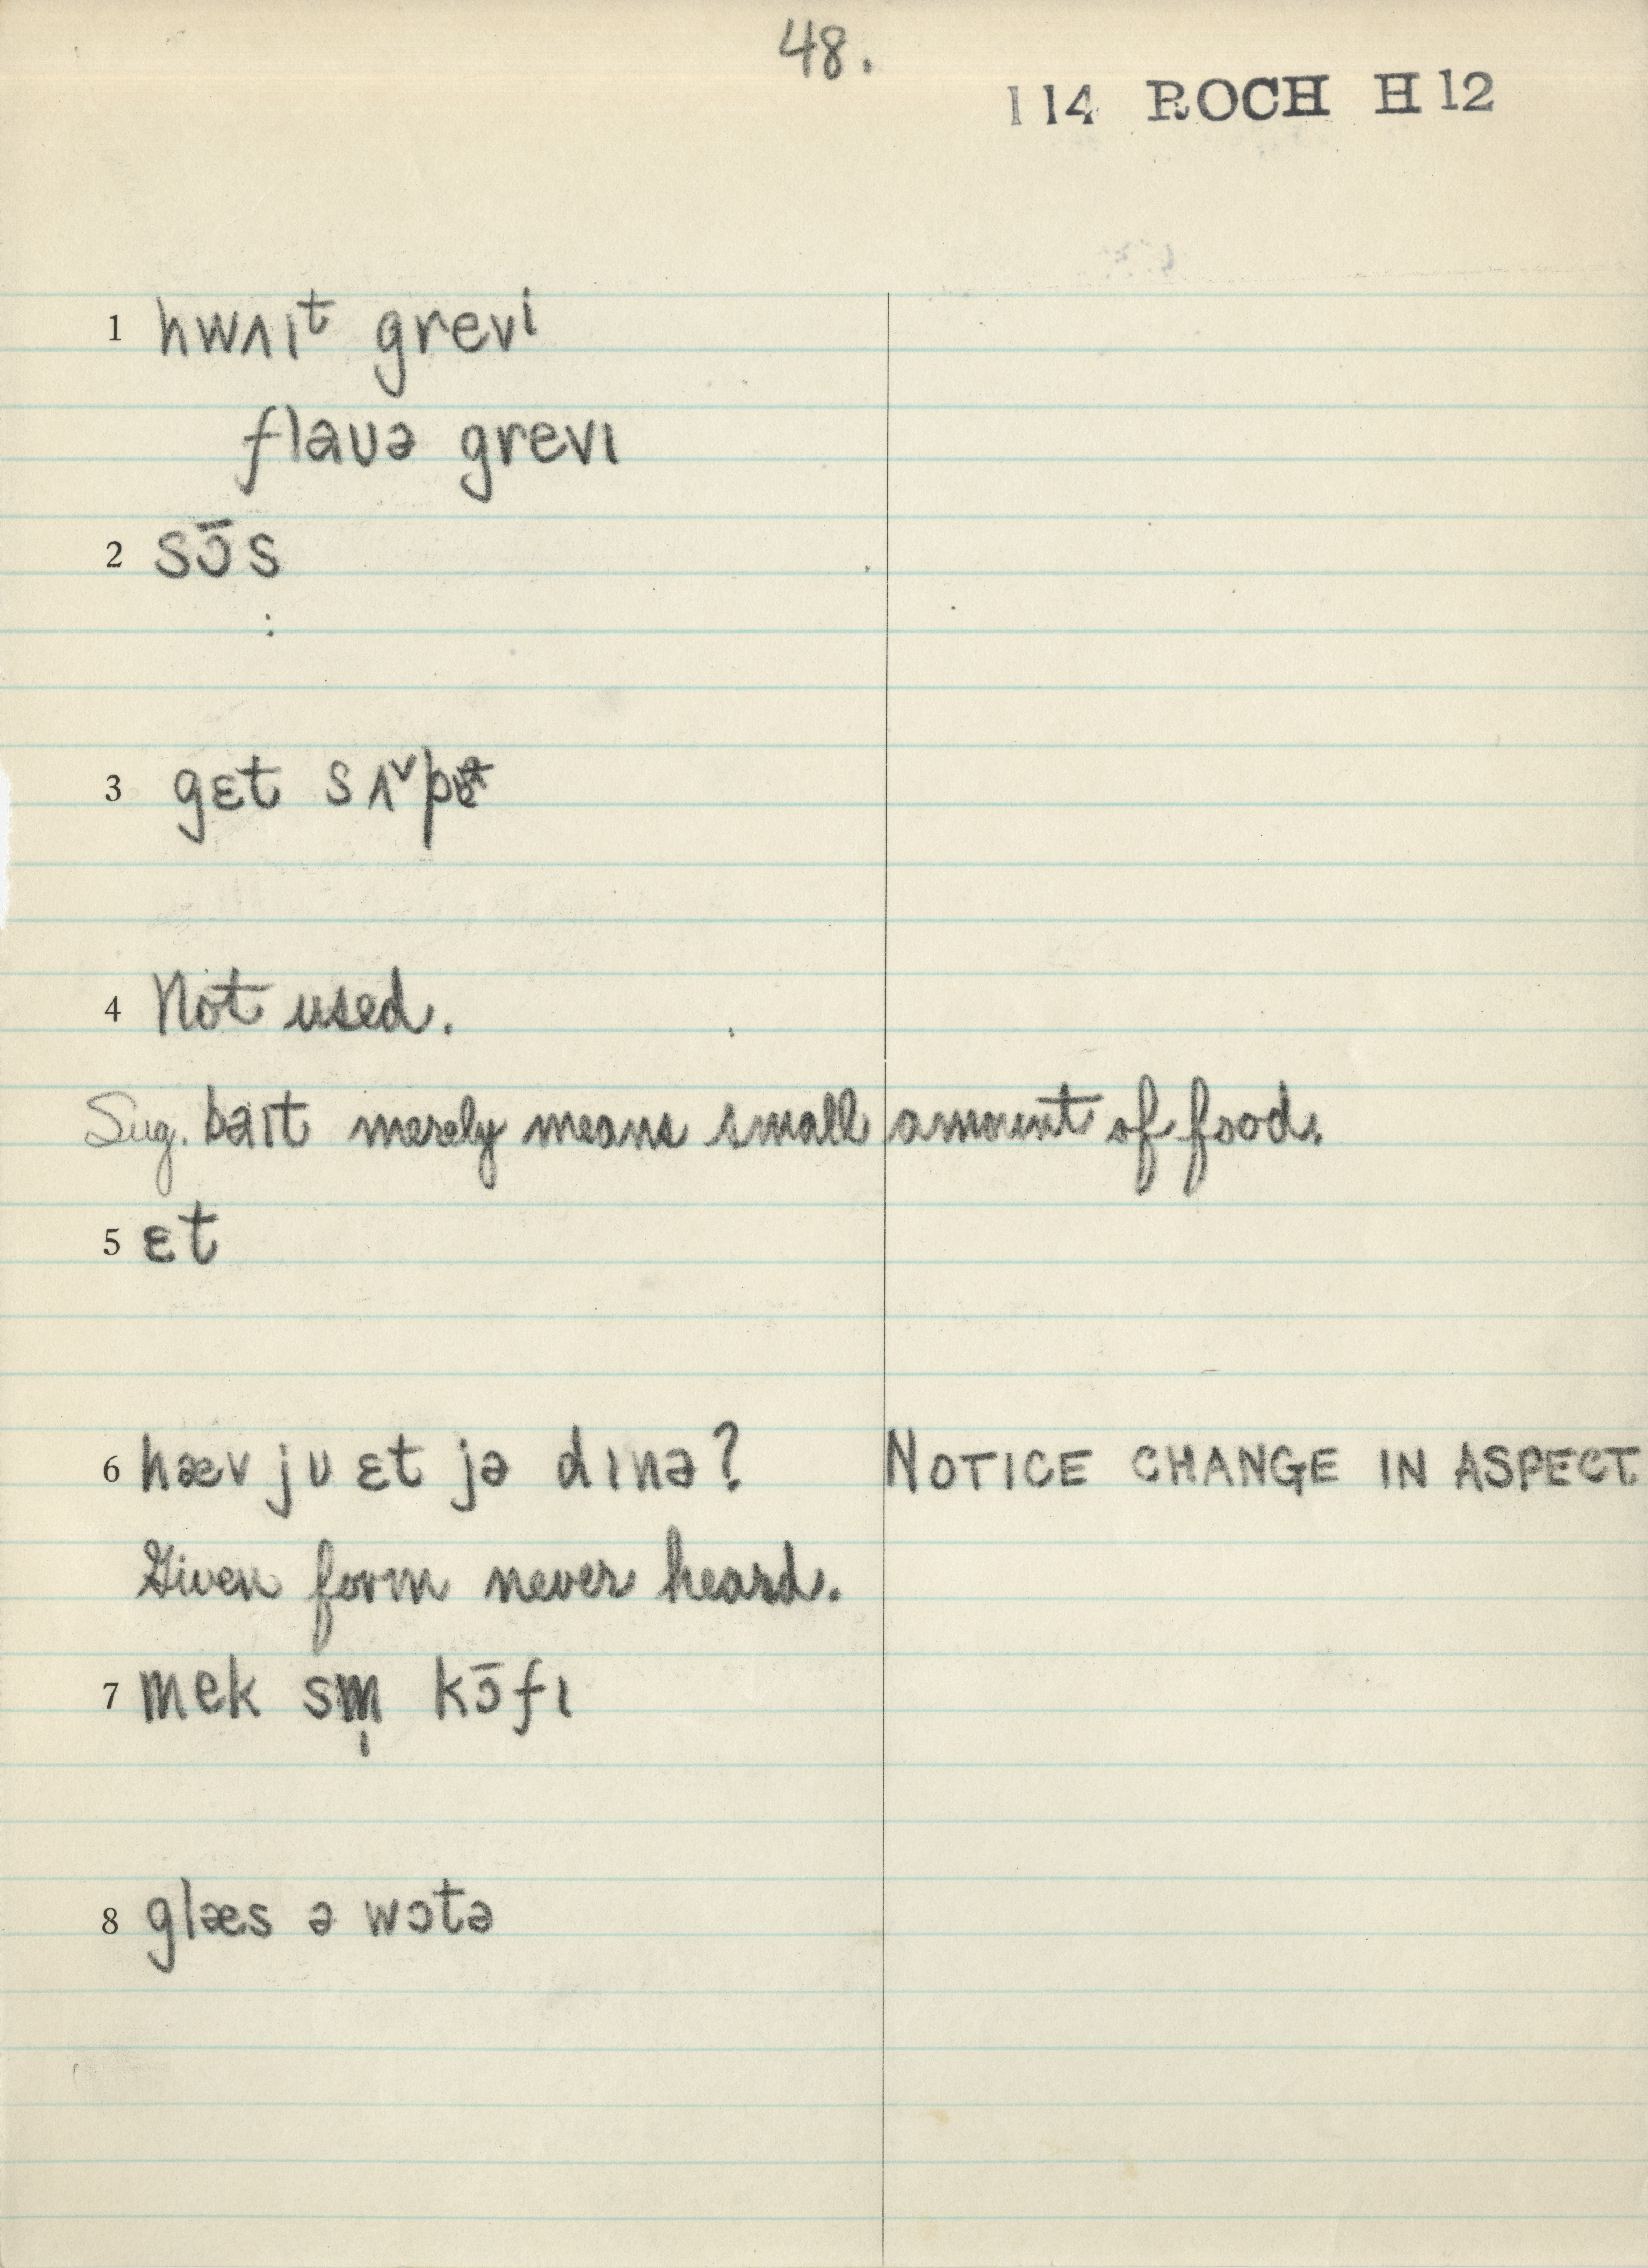 48.
114 ROCH H12
1 hwʌɪᵗ grevⁱ
flauə grevɪ
2 sɔ̄s
:
3 gɛt
4 Not used.
Sug. baɪt merely means small amount of food.
5 ɛt
6 hæv jʊ ɛt jə dɪnə? NOTICE CHANGE IN ASPECT
Given form never heard.
7 mek sm̩ kɔ̄fɪ
8 glæs ə wɔtə